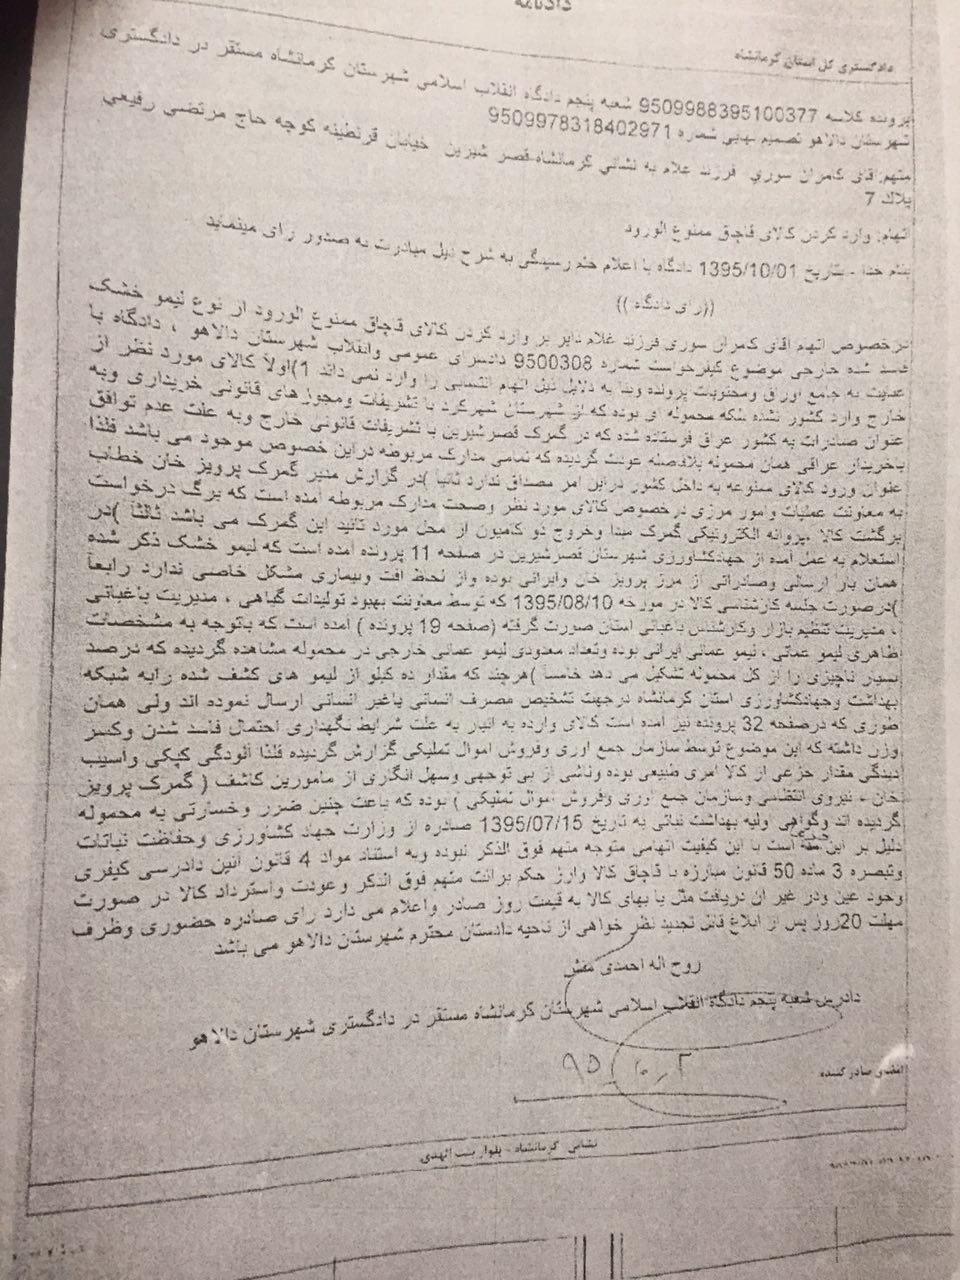 دادنامه
دادگستری کل استان کرمانشاه
پرونده کلاسه 9509988395100377 شعبه پنجم دادگاه انقلاب اسلامی شهرستان کرمانشاه مستقر در دادگستری
شهرستان دالاهو تصمیم نهایی شماره 9509978318402971
متهم: آقای کامران سوری فرزند غلام به نشانی کرمانشاه-قصر شیرین خیابان قرنطینه کوچه حاج مرتضی رفیعی
پلاک 7
اتهام: وارد کردن کالای قاچاق ممنوع الورود
بنام خدا - بتاریخ 1395/10/01 دادگاه با اعلام ختم رسیدگی به شرح ذیل مبادرت به صدور رای مینماید
((رای دادگاه ))
درخصوص اتهام آقای کامران سوری فرزند غلام دایر بر وارد کردن کالای قاچاق ممنوع الورود از نوع لیمو خشک
فاسد شده خارجی موضوع کیفرخواست شماره 9500308 دادسرای عمومی وانقلاب شهرستان دالاهو ، دادگاه با
عنایت به جامع اوراق ومحتویات پرونده وبنا به دلایل ذیل اتهام انتسابی را وارد نمی داند 1)اولاً کالای مورد نظر از
خارج وارد کشور نشده بلکه محموله ای بوده که از شهرستان شهرکرد با تشریفات ومجوزهای قانونی خریداری وبه
عنوان صادرات به کشور عراق فرستاده شده که در گمرک قصرشیرین با تشریفات قانونی خارج وبه علت عدم توافق
باخریدار عراقی همان محموله بلافاصله عودت گردیده که تمامی مدارک مربوطه دراین خصوص موجود می باشد فلذا
عنوان ورود کالای ممنوعه به داخل کشور دراین امر مصداق ندارد ثانیا )در گزارش مدیر گمرک پرویز خان خطاب
به معاونت عملیات وامور مرزی درخصوص کالای مورد نظر وصحت مدارک مربوطه آمده است که برگ درخواست
برگشت کالا ،پروانه الکترونیکی گمرک مبدا وخروج دو کامیون از محل مورد تائید این گمرک می باشد ثالثاً )در
استعلام به عمل آمده از جهادکشاورزی شهرستان قصرشیرین در صفحه 11 پرونده آمده است که لیمو خشک ذکر شده
همان بار ارسالی وصادراتی از مرز پرویز خان وایرانی بوده واز لحظ افت وبیماری مشکل خاصی ندارد رابعاً
)درصورت جلسه کارشناسی کالا در مورخه 1395/08/10 که توسط معاونت بهبود تولیدات گیاهی ، مدیریت باغبانی
، مدیریت تنظیم بازار وکارشناس باغبانی استان صورت گرفته (صفحه 19 پرونده ) آمده است که باتوجه به مشخصات
ظاهری لیمو عمانی ، لیمو عمانی ایرانی بوده وتعداد معدودی لیمو عمانی خارجی در محموله مشاهده گردیده که درصد
بسیار ناچیزی را از کل محموله تشکیل می دهد خامسا )هرچند که مقدار ده کیلو از لیمو های کشف شده رابه شبکه
بهداشت وجهادکشاورزی استان کرمانشاه درجهت تشخیص مصرف انسانی یاغیر انسانی ارسال نموده اند ولی همان
طوری که درصفحه 32 پرونده نیز آمده است کالای وارده به انبار به علت شرایط نگهداری احتمال فاسد شدن وکسر
وزن داشته که این موضوع توسط سازمان جمع اوری وفروش اموال تملیکی گزارش گردیده فلذا آلودگی کپکی واسیب
دیدگی مقدار جزعی از کالا امری طبیعی بوده وناشی از بی توجهی وسهل انگاری از مامورین کاشف ( گمرک پرویز
خان ، نیروی انتظامی وسازمان جمع اوری وفروش اموال تملیکی ) بوده که باعث چنین ضرر وخسارتی به محموله
گردیده اند وگواهی اولیه بهداشت نباتی به تاریخ 1395/07/15 صادره از وزارت جهاد کشاورزی وحفاظت نباتات
دلیل بر این است با این کیفیت اتهامی متوجه متهم فوق الذکر نبوده وبه استناد مواد 4 قانون آئین دادرسی کیفری
وتبصره 3 ماده 50 قانون مبارزه با قاچاق کالا وارز حکم برائت متهم فوق الذکر وعودت واسترداد کالا در صورت
وجود عین ودر غیر ان دریافت مثل یا بهای کالا به قیمت روز صادر واعلام می دارد رای صادره حضوری وظرف
مهلت 20روز پس از ابلاغ قابل تجدید نظر خواهی از ناحیه دادستان محترم شهرستان دالاهو می باشد
روح اله احمدی منش
دادرس شعبه پنجم دادگاه انقلاب اسلامی شهرستان کرمانشاه مستقر در دادگستری شهرستان دالاهو
۹۵/۱۰/۲
امضای صادرکننده
نشانی: کرمانشاه - بلوار بنت الهدی